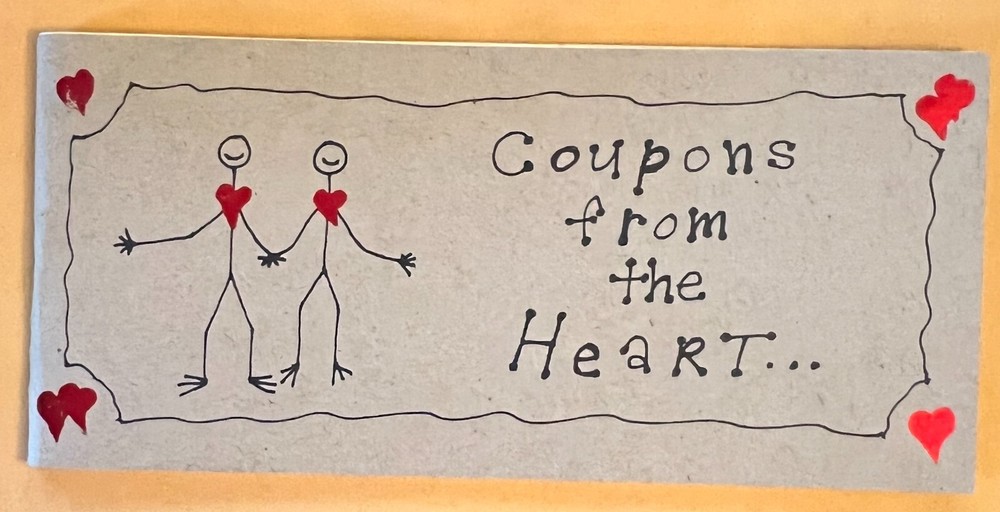 Coupons
from
the
HeaRT...